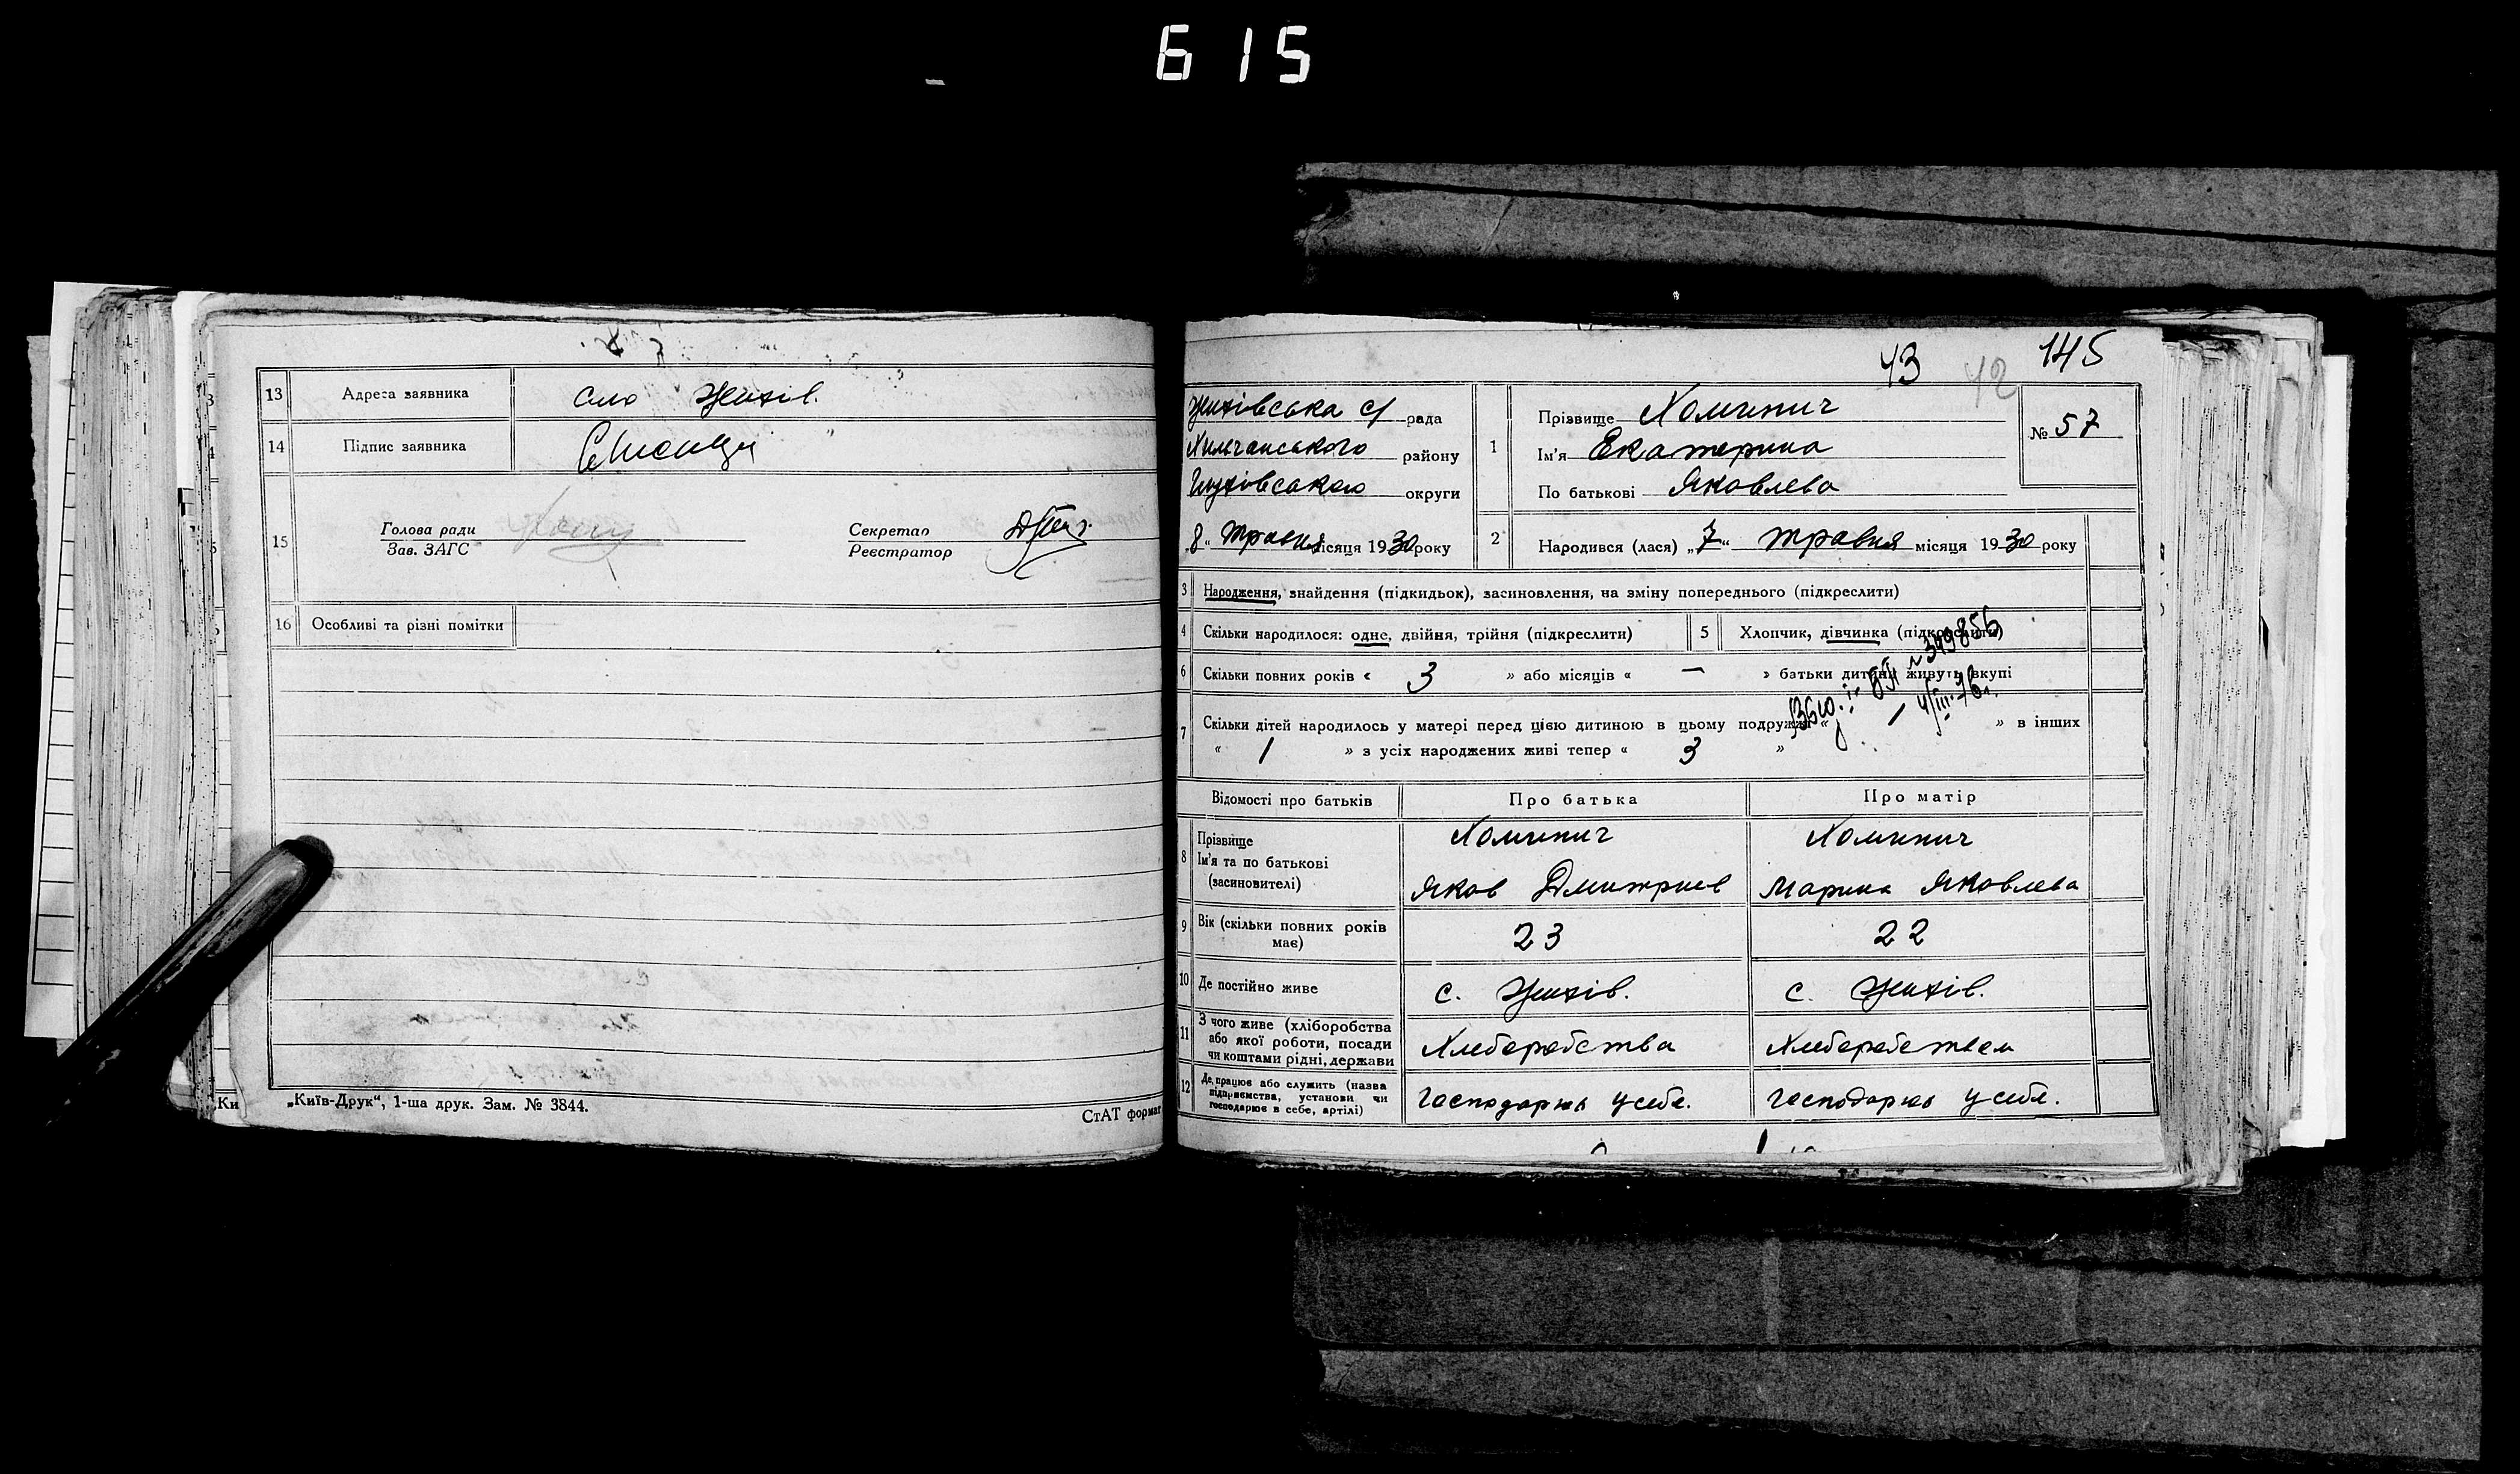 615
13 Адреса заявника село Жихів.
14 Підпис заявника
15 Голова ради Секретар
Зав. ЗАГС Реєстратор
16 Особливі та різні помітки
„Київ-Друк“, 1-ша друк. Зам. № 3844.
СтАТ формат
Ки
43 42 145
Жихівська с/рада
Хильчанського району
Глухівського округи
„8“ травня місяця 1930 року
1 Прізвище Хоминич
Ім'я Екатерина
По батькові Яковлева
№ 57
2 Народився (лася) „7“ травня місяця 1930 року
3 Народження, знайдення (підкидьок), засиновлення, на зміну попереднього (підкреслити)
4 Скільки народилося: одне, двійня, трійня (підкреслити)
5 Хлопчик, дівчинка (підкреслити)
6 Скільки повних років « 3 » або місяців « — » батьки дитини живуть вкупі
7 Скільки дітей народилось у матері перед цією дитиною в цьому подружжі « » в інших
« 1 » з усіх народжених живі тепер « 3 »
№ 349856
4/III-76
Відомості про батьків Про батька Про матір
8 Прізвище Хоминич Хоминич
Ім'я та по батькові
(засиновителі) Яков Дмитриев Марина Яковлева
9 Вік (скільки повних років має) 23 22
10 Де постійно живе с. Жихів. с. Жихів.
11 З чого живе (хліборобства
або якої роботи, посади
чи коштами рідні, держави Хлеборобства Хлеборобством
12 Де працює або служить (назва
підприємства, установи чи
господарює в себе, артілі) Господарює у себе. Господарює у себе.